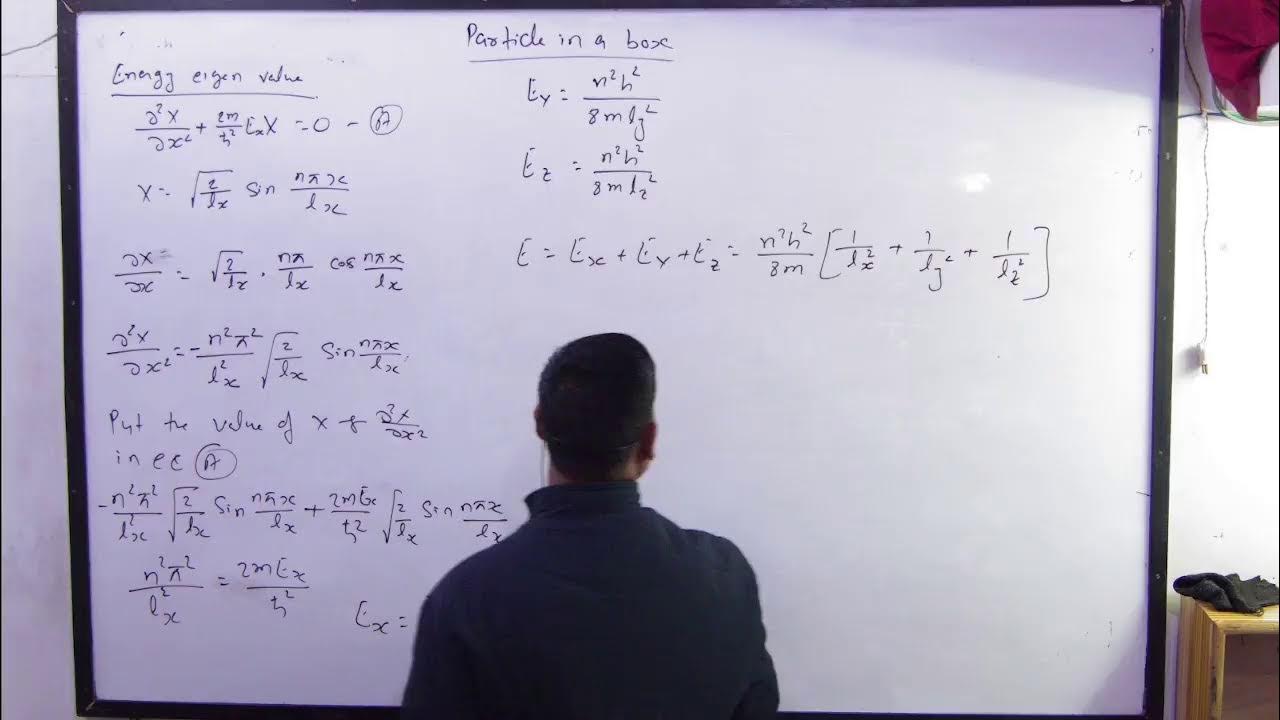 Particle in a box
Energy eigen value
∂²X/∂x² + 2m/ħ² EₓX = 0 – (A)
X = √(2/lₓ) Sin nπx/lₓ
∂X/∂x = √(2/lₓ) · nπ/lₓ cos nπx/lₓ
∂²X/∂x² = - n²π²/lₓ² √(2/lₓ) Sin nπx/lₓ
Put the value of X & ∂²X/∂x²
in eq (A)
- n²π²/lₓ² √(2/lₓ) Sin nπx/lₓ + 2mEₓ/ħ² √(2/lₓ) Sin nπx/lₓ
n²π²/lₓ² = 2mEₓ/ħ²
Eₓ =
E_y = n²h²/8m l_y²
E_z = n²h²/8m l_z²
E = Eₓ + E_y + E_z = n²h²/8m [1/lₓ² + 1/l_y² + 1/l_z²]